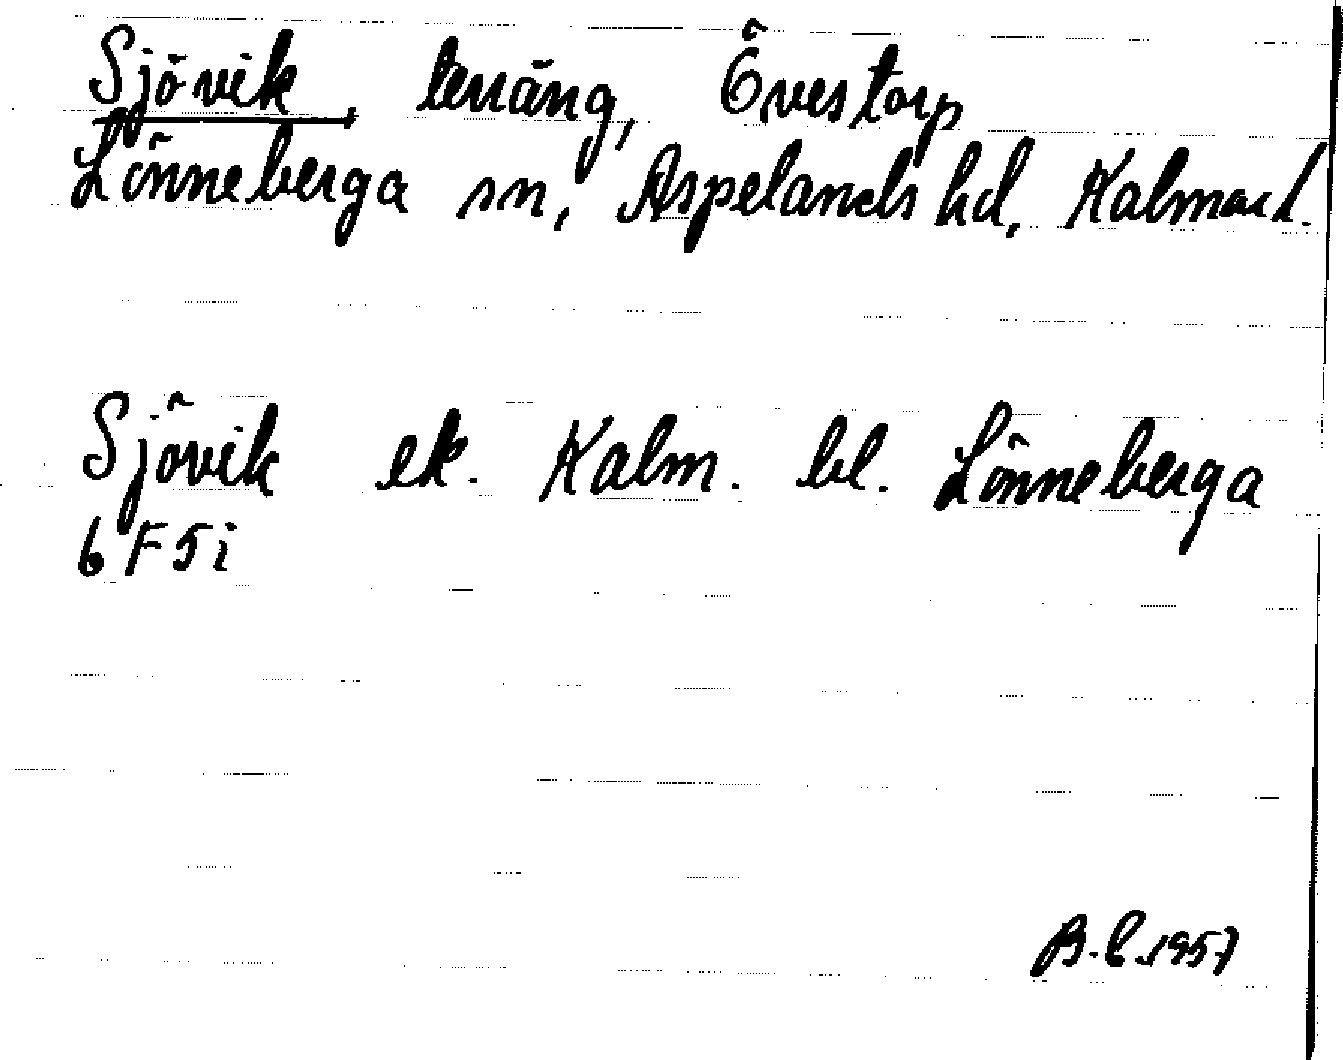 Sjövik, terräng, Övestorp
Lönneberga sn, Aspelands hd, Kalmar l.
Sjövik ek. Kalm. bl. Lönneberga
6 F 5 i
B.C. 1957